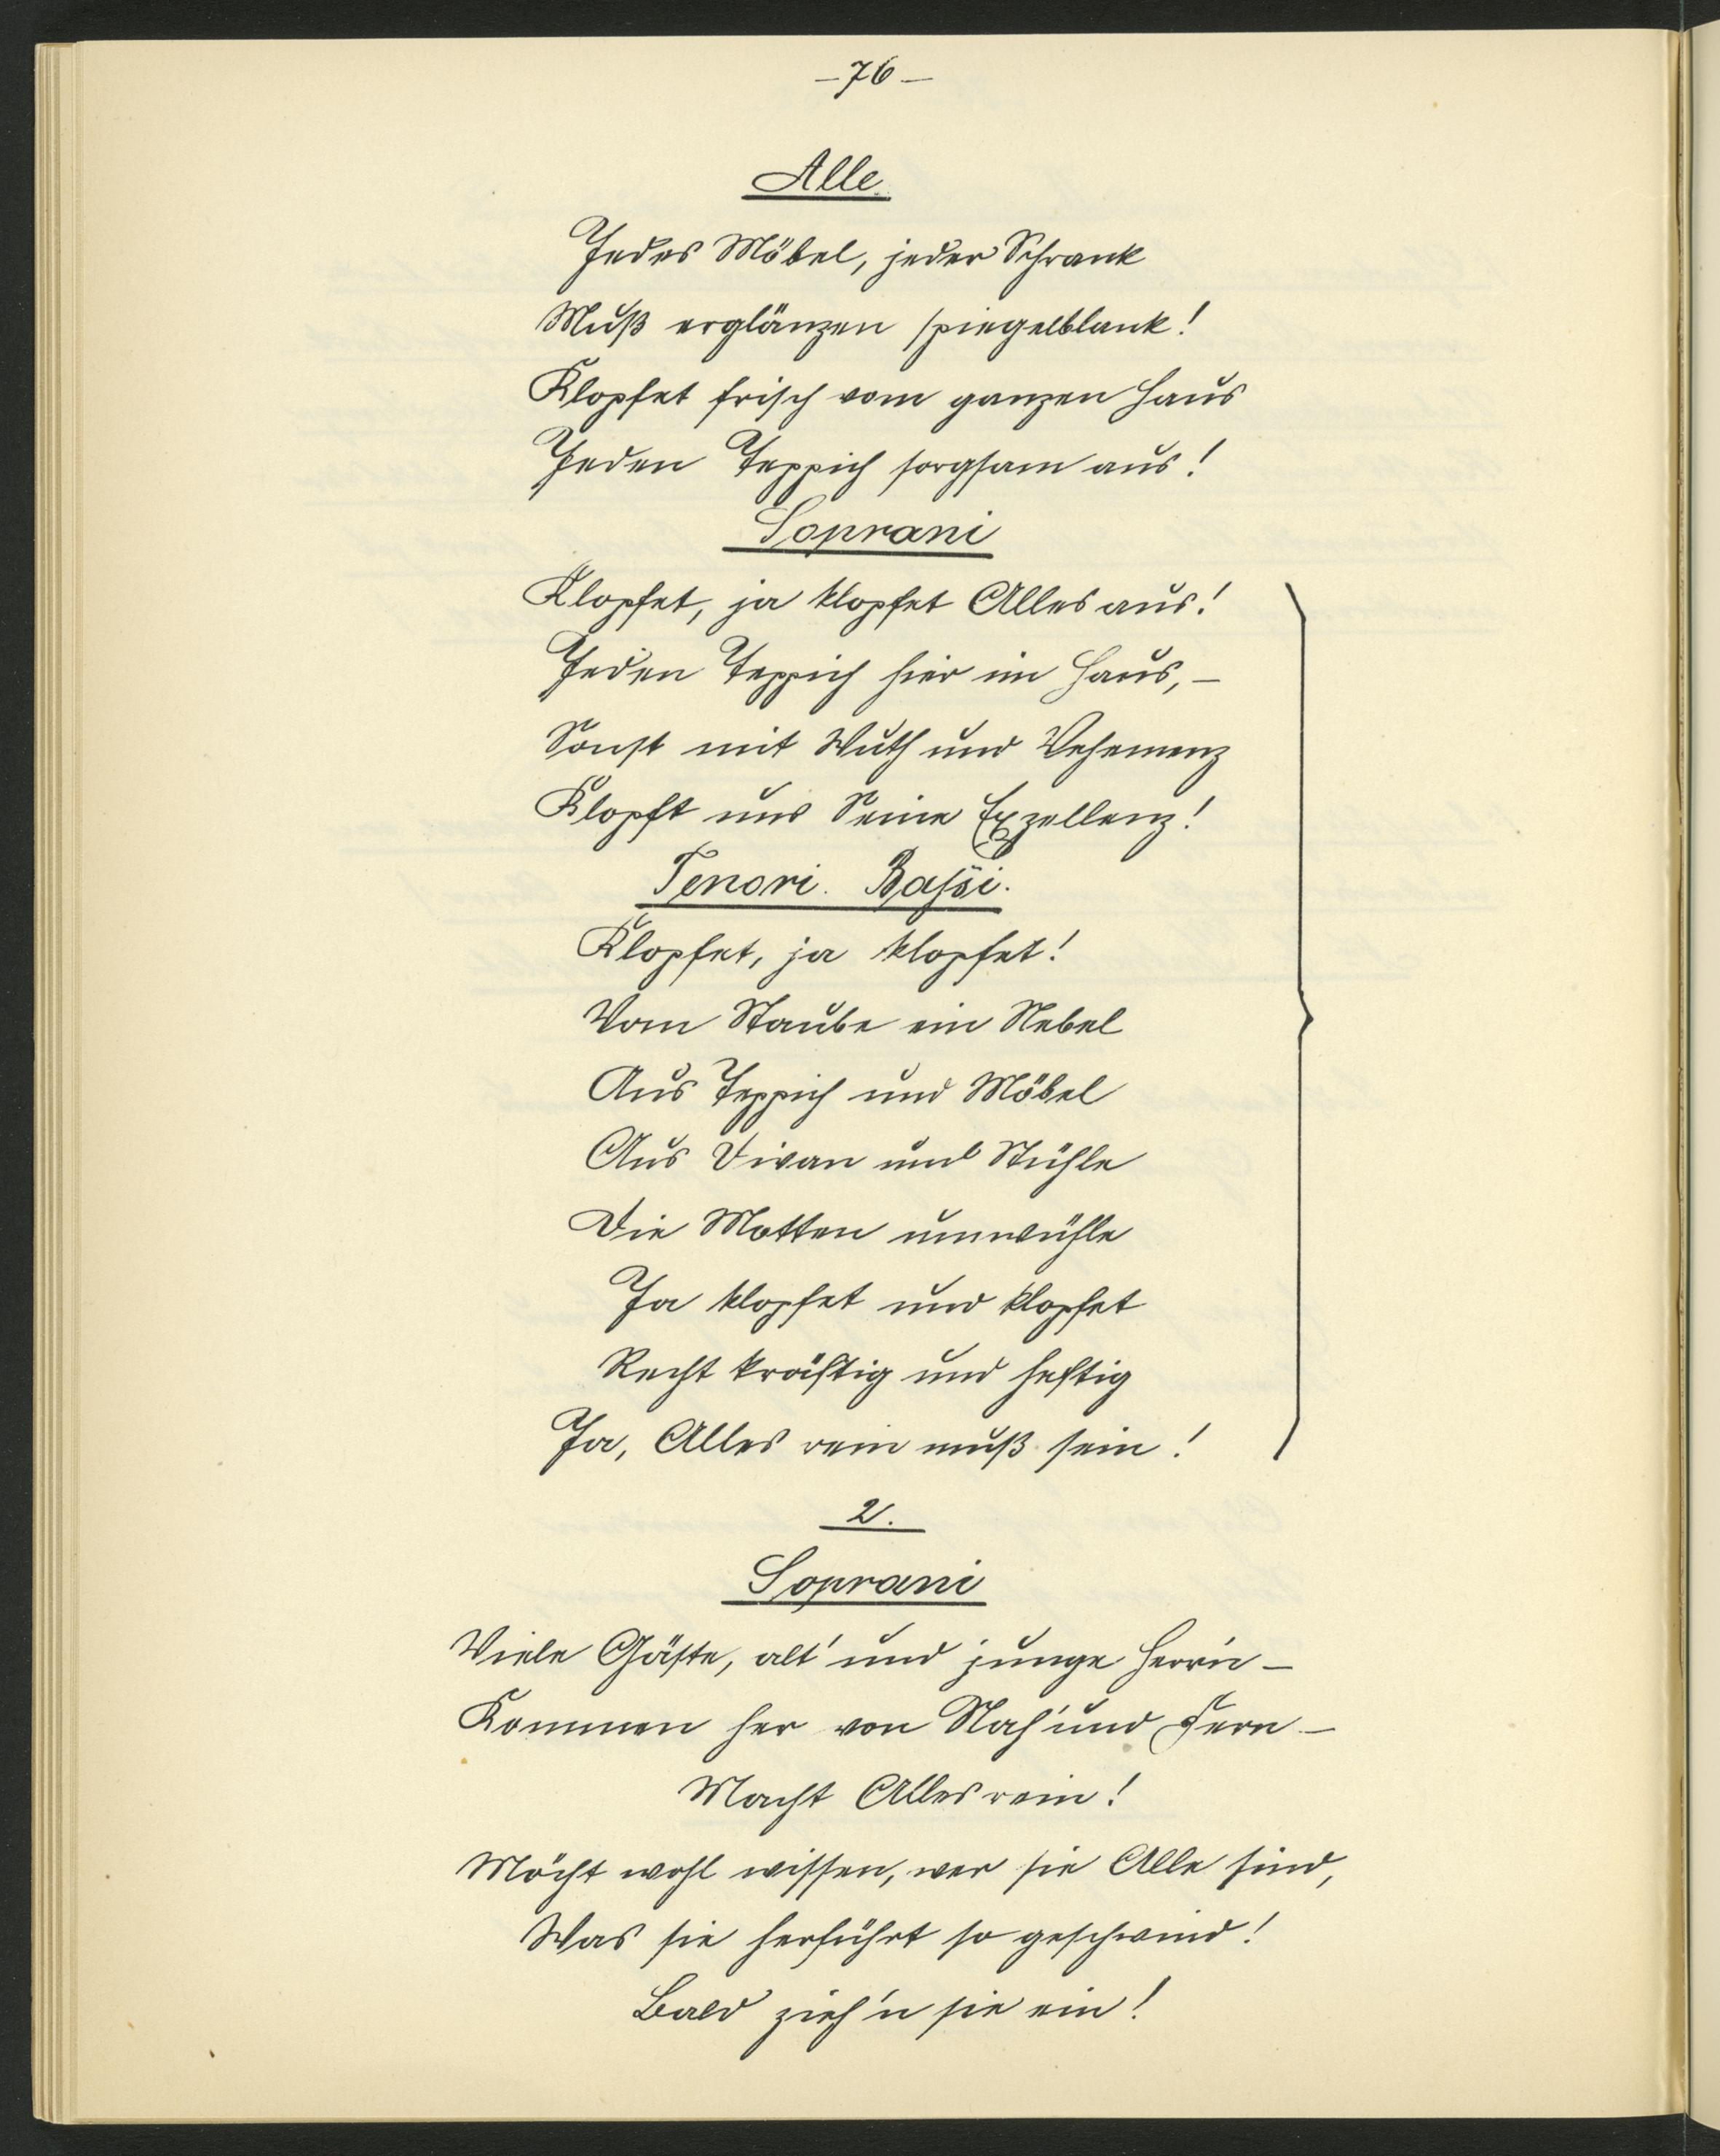 – 76 –
Alle.
Jedes Möbel, jeder Schrank
Muß erglänzen spiegelblank!
Klopfet frisch vom ganzen Haus
Jeden Teppich sorgsam aus!
Soprani
Klopfet, ja klopfet Alles aus!
Jeden Teppich hier im Haus, –
Sonst mit Wuth und Vehemenz
Klopft uns Seine Exzellenz!
Tenori. Bassi.
Klopfet, ja klopfet!
Vom Staube ein Nebel
Aus Teppich und Möbel
Aus Divan und Stühle
Die Motten umwühle
Ja klopfet und klopfet
Recht kräftig und heftig
Ja, Alles rein muß sein!
2.
Soprani
Viele Gäste, alt' und junge Herrn –
Kommen her von Nah' und Fern –
Macht Alles rein!
Möcht wohl wissen, wer sie Alle sind,
Was sie herführt so geschwind!
Bald zieh'n sie ein!